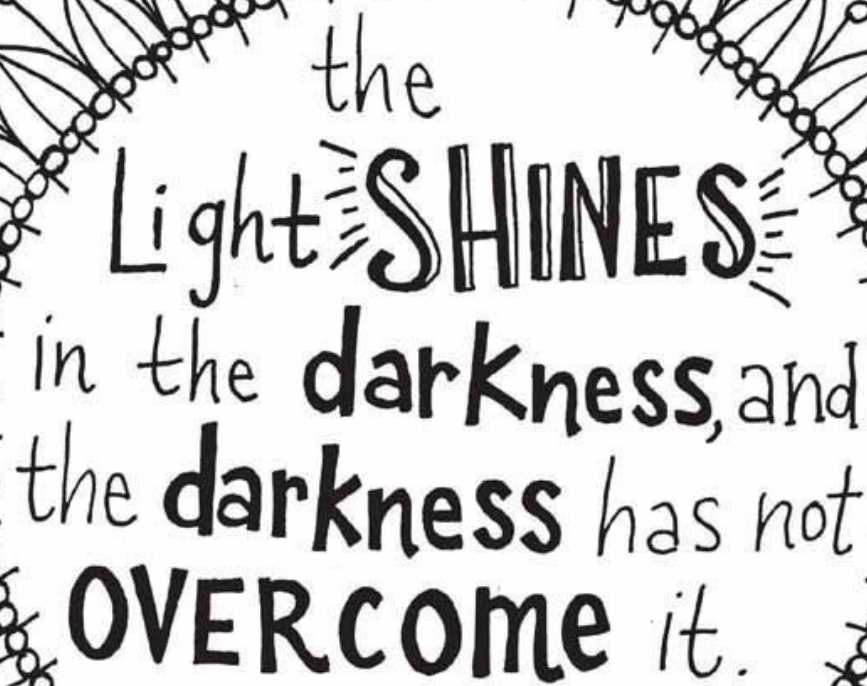 the
Light SHINES
in the darkness, and
the darkness has not
OVERCOme it.